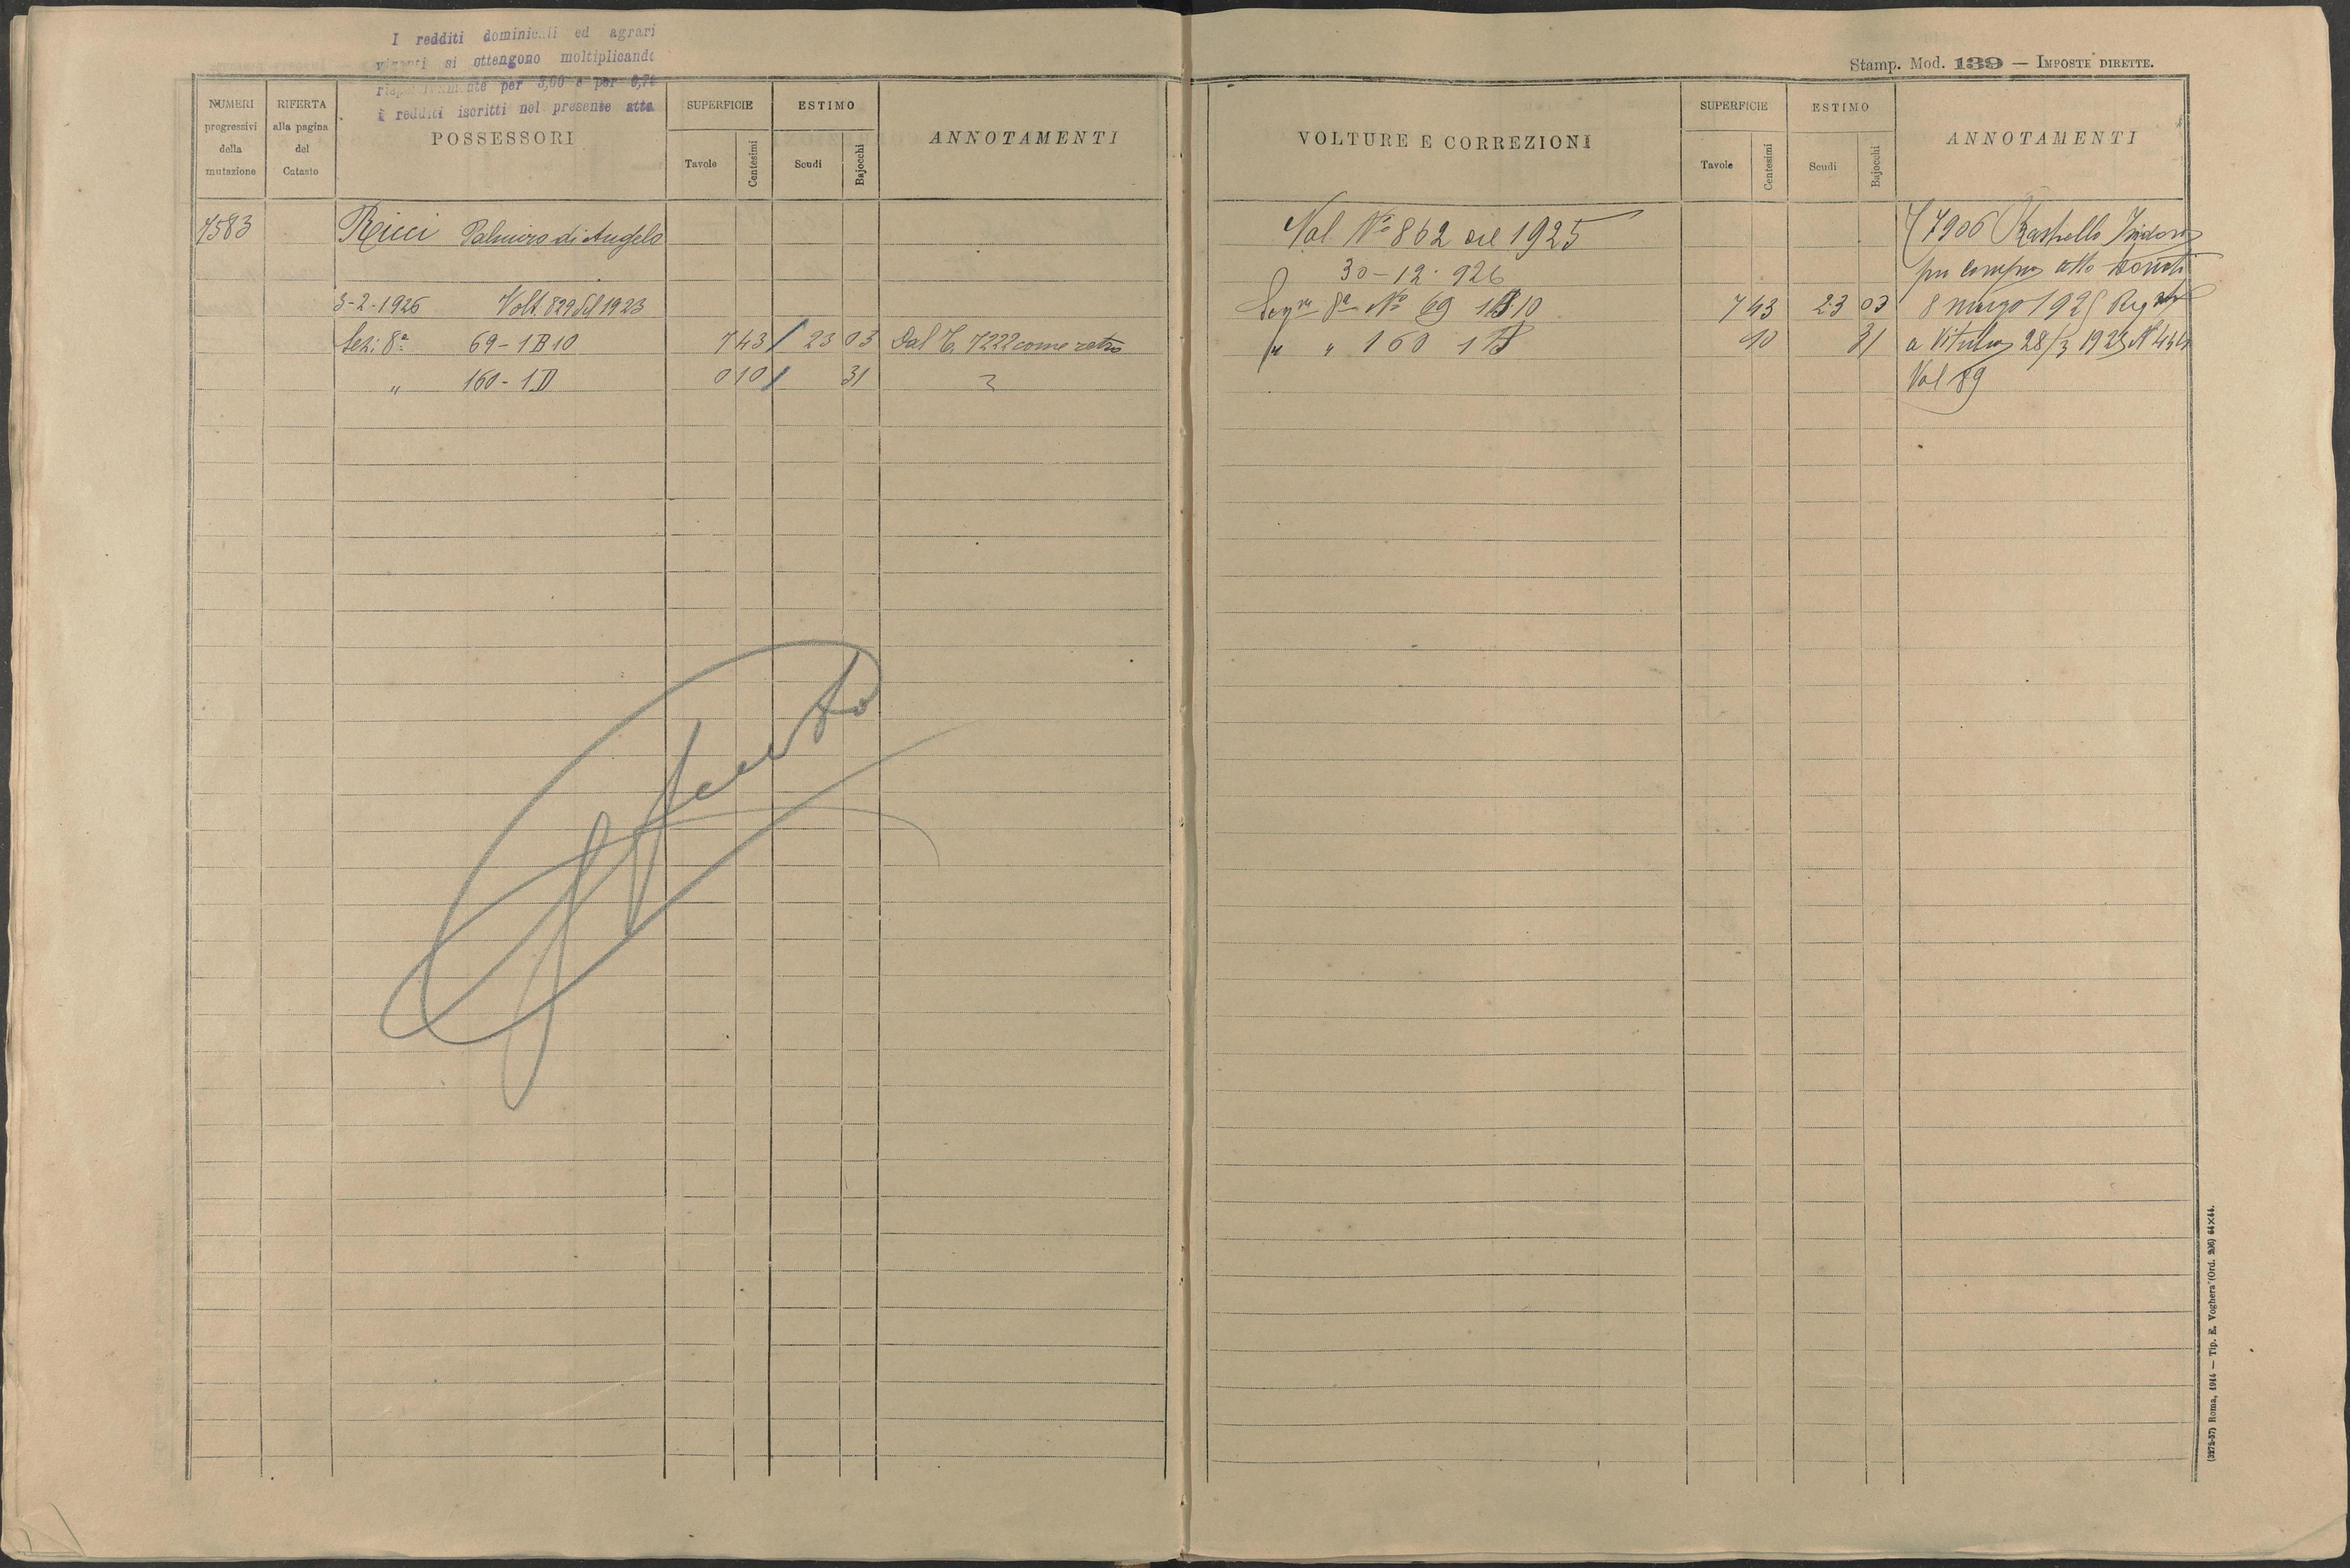 I redditi dominicali ed agrari
vigenti si ottengono moltiplicando
per 3,60 e per
i redditi iscritti nel presente atto
Stamp. Mod. 139 — IMPOSTE DIRETTE.
NUMERI progressivi della mutazione
RIFERTA alla pagina del Catasto
POSSESSORI
SUPERFICIE
Tavole
Centesimi
ESTIMO
Scudi
Bajocchi
ANNOTAMENTI
VOLTURE E CORREZIONI
SUPERFICIE
Tavole
Centesimi
ESTIMO
Scudi
Bajocchi
ANNOTAMENTI
7583 Ricci Palmiro di Angelo
3-2-1926 Volt. 829 del 1923
Sez: 8ª 69-1B10 7 43 23 03 Dal T. 7222 come retro
„ 160-1D 0 10 31
Vol. Nº 862 del 1925
30-12-926
8ª Nº 69 1B10 7 43 23 03
„ „ 160 1 10 31
7906 Rastrello Isidoro
per compra atto
8 marzo 1925
a Viterbo 28/3 1925 Nº
Vol 89
(3272-57) Roma, 1914 — Tip. E. Voghera (Ord. 206) 44×44.